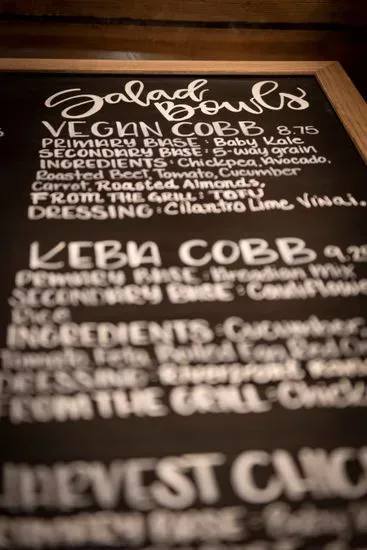 Salad Bowls
VEGAN COBB 8.75
PRIMARY BASE: Baby Kale
SECONDARY BASE: 5-way grain
INGREDIENTS: Chickpea, Avocado,
Roasted Beet, Tomato, Cucumber
Carrot, Roasted Almonds,
FROM THE GRILL: TOFU
DRESSING: Cilantro Lime Vinai.
KEBA COBB 9.25
PRIMARY BASE: Arcadian Mix
SECONDARY BASE: Cauliflower
Rice
INGREDIENTS: Cucumber,
Tomato, Feta,
DRESSING:
FROM THE GRILL: Chick
HARVEST CHIC
PRIMARY BASE: Baby